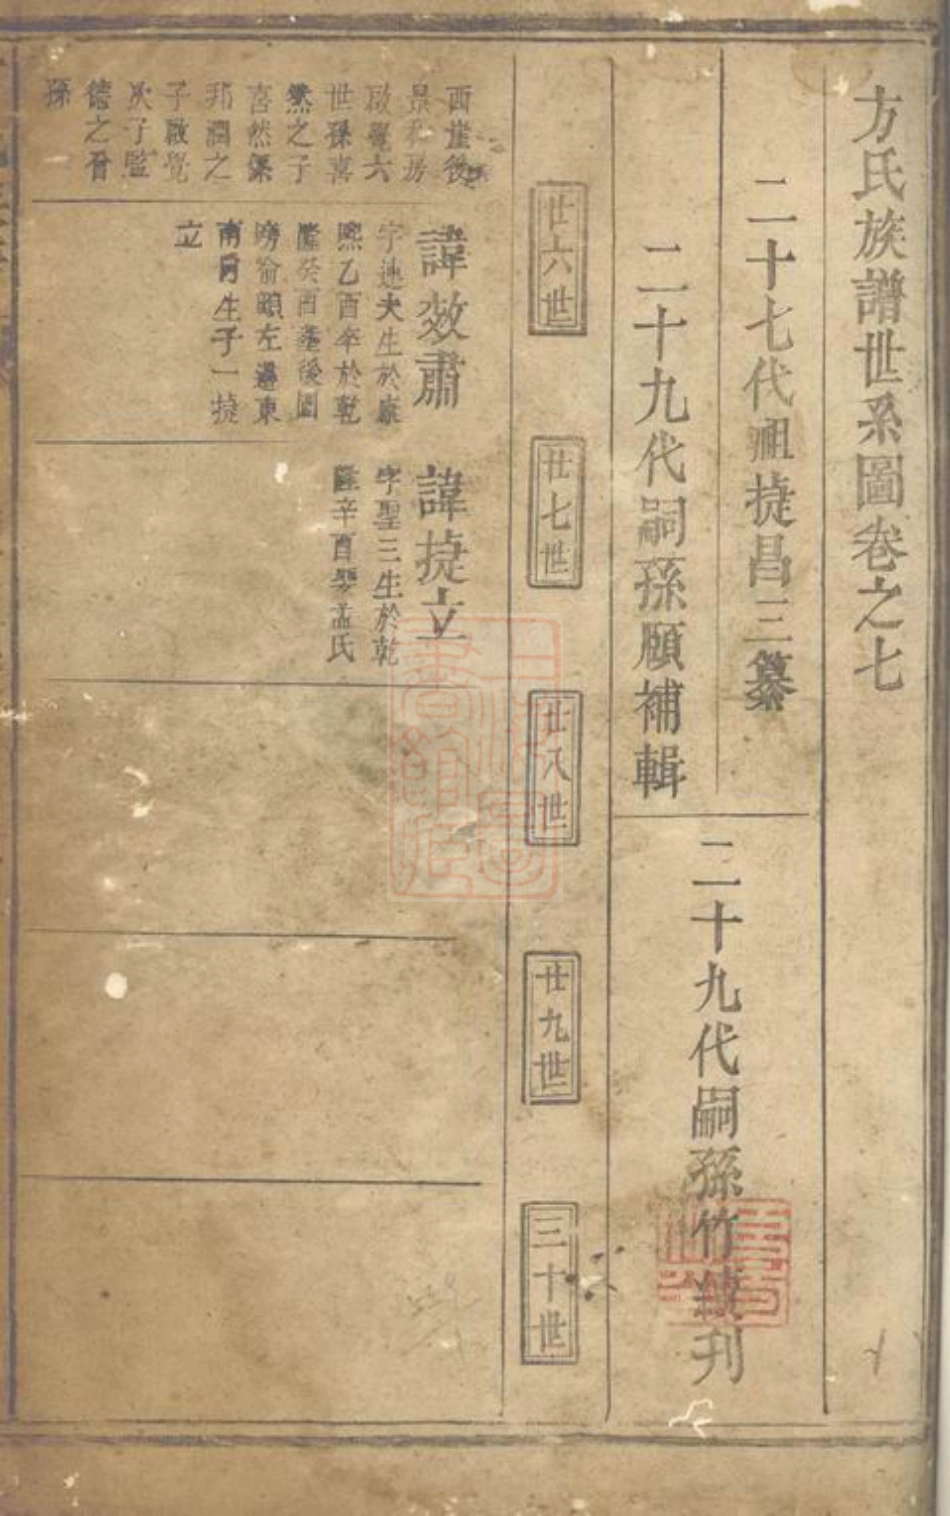 方氏族譜世系圖卷之七
二十七代祖捷昌三纂
二十九代嗣孫願補輯
二十九代嗣孫竹鐫刊
廿六世
廿七世
廿八世
廿九世
三十世
西崖後
景和房
啟覺六
世孫喜
然之子
喜然係
邦潤之
子啟覺
次子監
德之晉
孫
諱效肅
字連夫生於康
熙乙酉卒於乾
隆癸酉墓後園
塝前頭左邊東
南向生子一捷
立
諱捷立
字聖三生於乾
隆辛酉娶孟氏